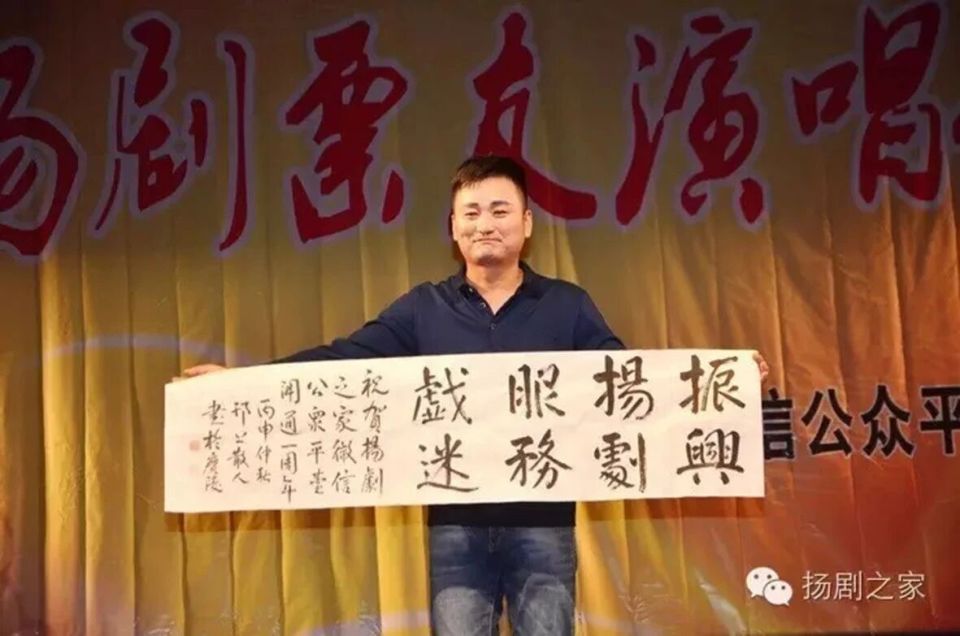 扬剧票友演唱
振興
揚劇
服務
戯迷
祝賀揚劇
之家微信
公衆平臺
開通一周年
丙申仲秋
邗上散人
書於廣陵
信公众平
扬剧之家